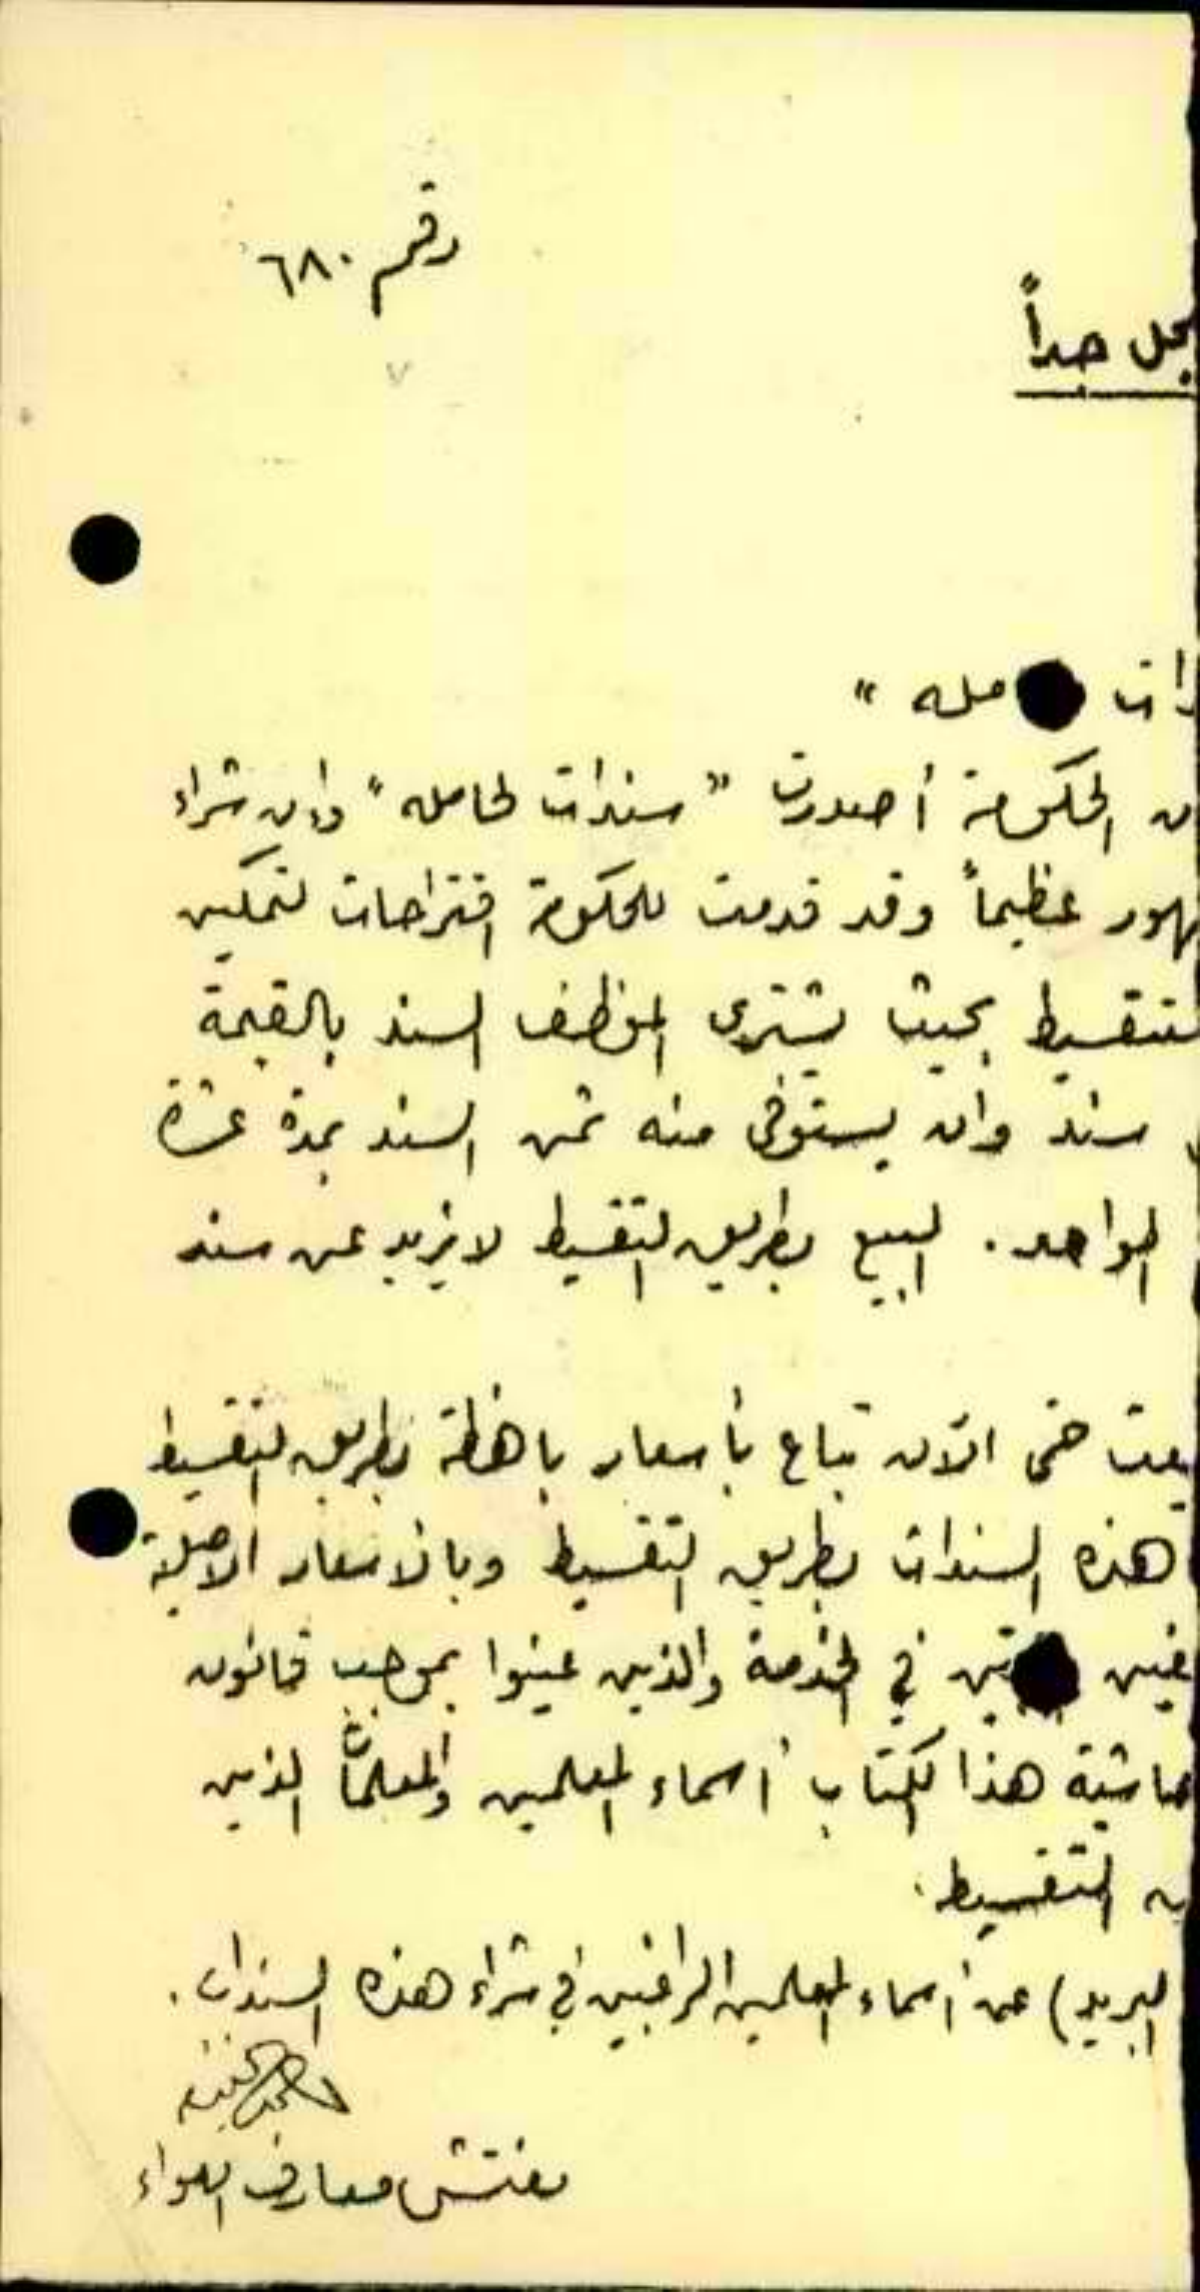 رقم ٦٨٠
جداً
حامله "
الحكومة أصدرت " سندات لحامله " وان شراء
عظيماً وقد قدمت للحكومة اقتراحات لتمكين
بحيث يشتري الموظف السند بالقيمة
سند وان يستوفى منه ثمن السند بمدة عشرة
الواحد . البيع بطريق التقسيط لا يزيد عن سند
حتى الآن تباع بأسعار باهظة بطريق التقسيط
هذه السندات بطريق التقسيط وبالاسعار الاصلية
في الخدمة والذين عينوا بموجب قانون
هذا الكتاب أسماء المعلمين والمعلمات الذين
التقسيط .
البريد) عن أسماء المعلمين الراغبين في شراء هذه السندات .
مفتش معارف اللواء